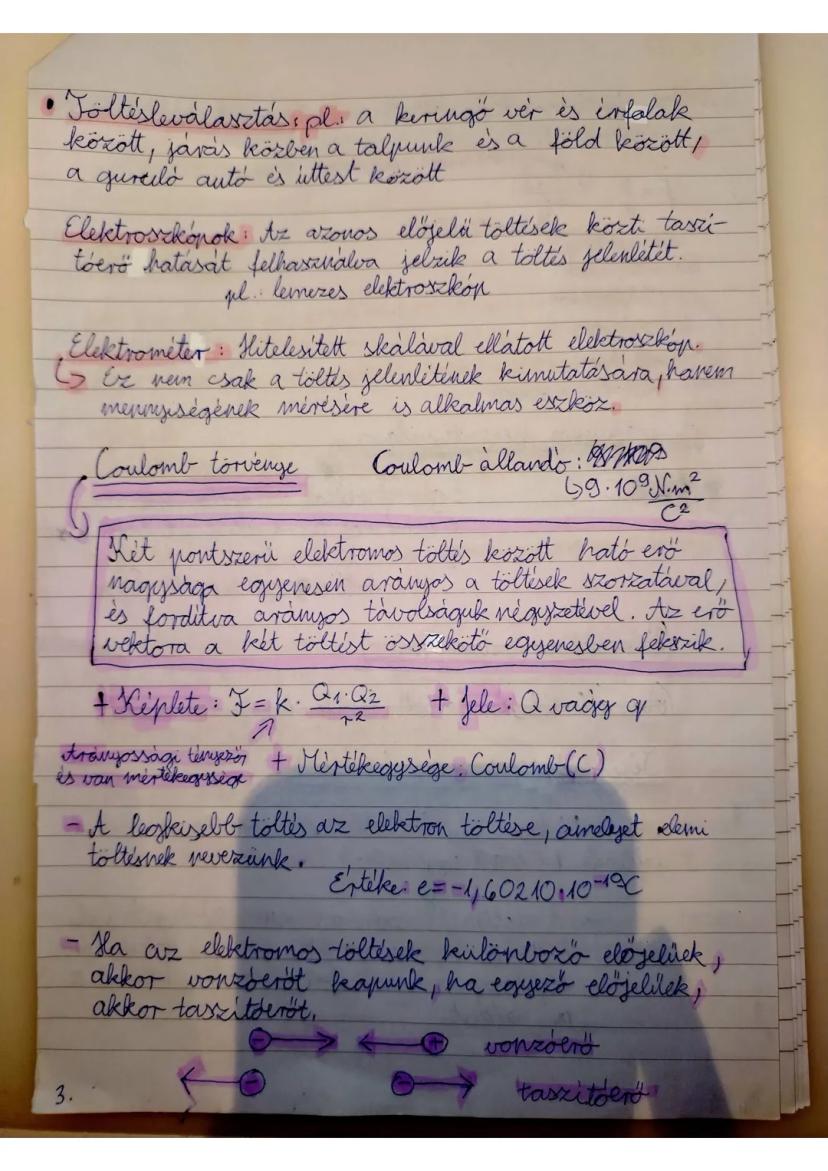 • Töltésleválasztás: pl.: a keringő vér és érfalak
között, járás közben a talpunk és a föld között,
a guruló autó és úttest között
Elektroszkópok: Az azonos előjelű töltések közti taszí-
tóerő hatását felhasználva jelzik a töltés jelenlétét.
pl.: lemezes elektroszkóp
Elektrométer: Hitelesített skálával ellátott elektroszkóp.
↳ Ez nem csak a töltés jelenlétének kimutatására, hanem
mennyiségének mérésére is alkalmas eszköz.
Coulomb törvénye Coulomb állandó:
↳ 9·10⁹ N·m²/C²
Két pontszerű elektromos töltés között ható erő
nagysága egyenesen arányos a töltések szorzatával,
és fordítva arányos távolságuk négyzetével. Az erő
vektora a két töltést összekötő egyenesben fekszik.
+ Képlete: F = k · Q₁·Q₂/r² + Jele: Q vagy q
Arányossági tényező
és van mértékegysége + Mértékegysége: Coulomb (C)
- A legkisebb töltés az elektron töltése, amelyet elemi
töltésnek nevezünk.
Értéke: e = -1,60210·10⁻¹⁹C
- Ha az elektromos töltések különböző előjelűek,
akkor vonzóerőt kapunk, ha egyező előjelűek,
akkor taszítóerőt.
⊖→ ←⊕ vonzóerő
←⊖ ⊖→ taszítóerő
3.